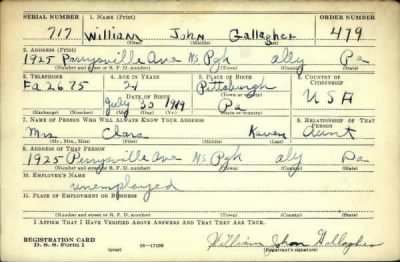 SERIAL NUMBER 1. NAME (Print) ORDER NUMBER
717 William John Gallagher 479
(First) (Middle) (Last)
2. ADDRESS (Print)
1925 Perrysville Ave Ns Pgh ally Pa
(Number and street or R. F. D. number) (Town) (County) (State)
3. TELEPHONE 4. AGE IN YEARS 5. PLACE OF BIRTH 6. COUNTRY OF CITIZENSHIP
Fa 2675 21 Pittsburgh
DATE OF BIRTH (Town or county) USA
July 30 1919 Pa
(Mo.) (Day) (Yr.) (State or country)
7. NAME OF PERSON WHO WILL ALWAYS KNOW YOUR ADDRESS 8. RELATIONSHIP OF THAT PERSON
Mrs Clara Aunt
(Mr., Mrs., Miss) (First) (Middle) (Last)
9. ADDRESS OF THAT PERSON
1925 Perrysville Ave Ns Pgh aly Pa
(Number and street or R. F. D. number) (Town) (County) (State)
10. EMPLOYER'S NAME
unemployed
11. PLACE OF EMPLOYMENT OR BUSINESS
(Number and street or R. F. D. number) (Town) (County) (State)
I AFFIRM THAT I HAVE VERIFIED ABOVE ANSWERS AND THAT THEY ARE TRUE.
REGISTRATION CARD
D. S. S. Form 1 (over) William John Gallagher
(Registrant's signature)